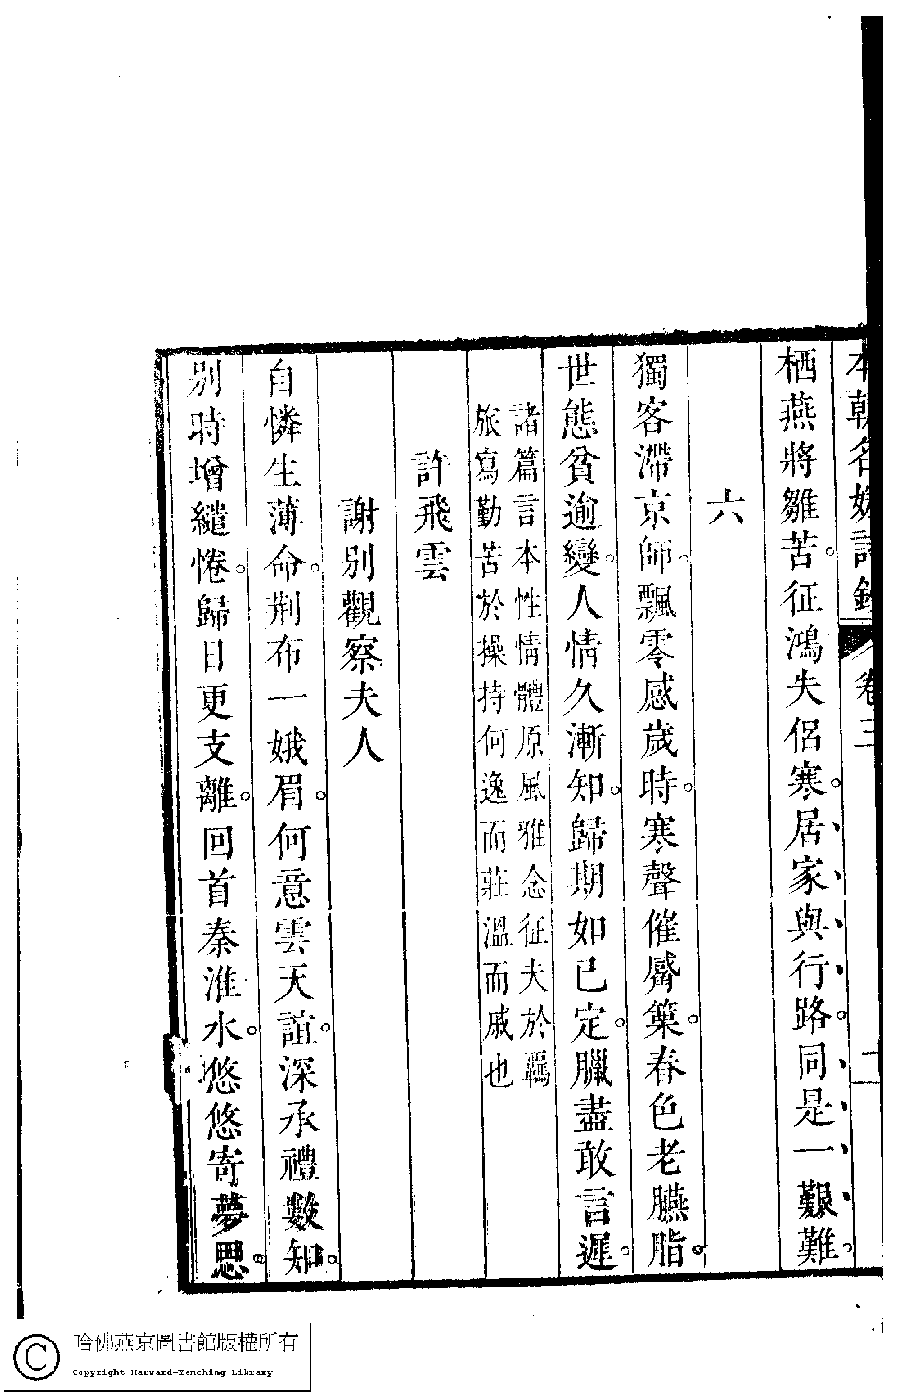 本朝名媛詩鈔 卷三 二
栖燕將雛苦。征鴻失侶寒。居家與行路。同是一艱難。
六
獨客滯京師。飄零感歲時。寒聲催觱篥。春色老臙脂。
世態貧逾變。人情久漸知。歸期如已定。臘盡敢言遲。
諸篇言本性情體原風雅念征夫於羈
旅寫勤苦於操持何逸而莊溫而戚也
許飛雲
謝別觀察夫人
自憐生薄命。荆布一娥眉。何意雲天誼。深承禮數知。
別時增繾惓。歸日更支離。回首秦淮水。悠悠寄夢思。
哈佛燕京圖書館版權所有
Copyright Harvard-Yenching Library